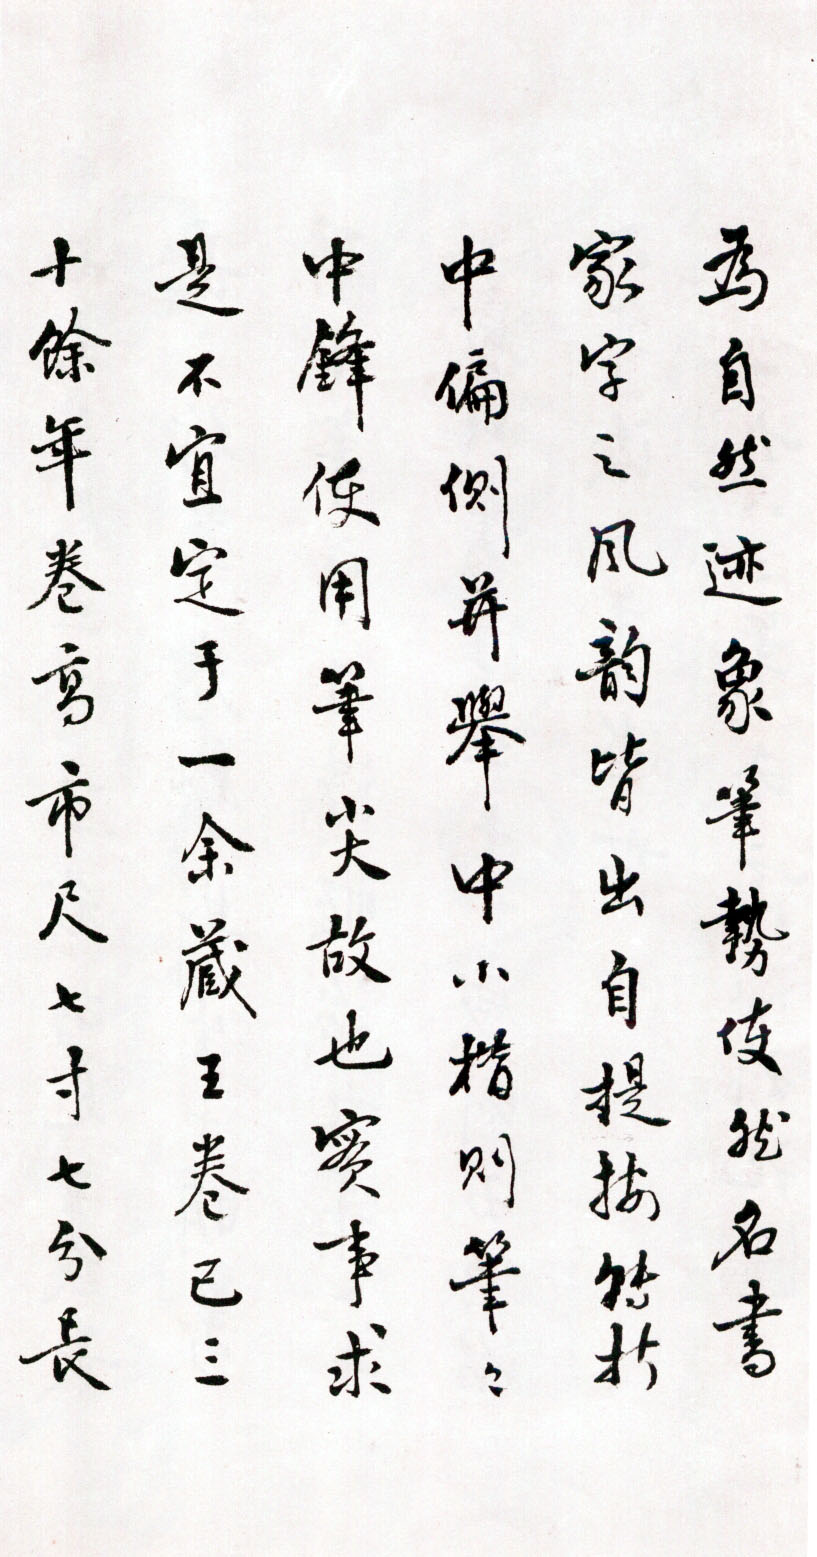 為自然迹象筆勢使然名書
家字之風韵皆出自提按轉折
中偏側并舉中小楷則筆々
中鋒使用筆尖故也實事求
是不宜定于一余藏王卷已三
十餘年卷高市尺七寸七分長